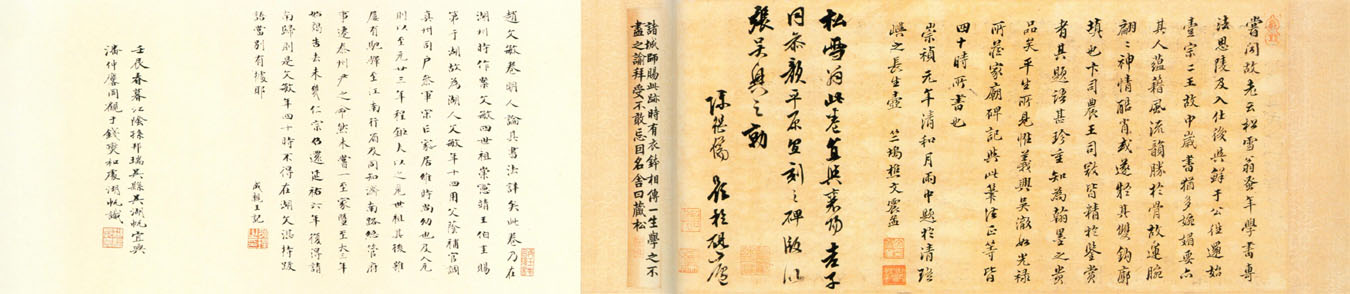 嘗聞故老云松雪翁蚤年學書專
法思陵及入仕後與鮮于公往還始
壹宗二王故中歲書猶多婉媚要亦
其人蘊藉風流韻勝於骨故運腕
翩翩神情酷肖或遂疑其雙鉤廓
填也卞司農王司寇皆精於鑒賞
者其題語甚珍重知為翰墨之貴
品矣平生所見惟義興吳澈如光祿
所藏家廟碑記與此筆法正等皆
四十時所書也
崇禎元年清和月雨中題於清瑤
嶼之長生壺 竺塢樵文震孟
松雪翁此卷直與襄陽吉子
同恭敬平原宜刻之碑版以
張吳興之勳
陳繼儒
諸城師賜此跡時有衣鉢相傳一生學之不
盡之諭拜受不敢忘因名舍曰藏松
趙文敏卷明人論其書法詳矣此卷乃在
湖州時作案文敏四世祖崇憲靖王伯圭賜
第于湖故為湖人文敏年十四用父蔭補官調
真州司戶參軍宋亡家居維時尚幼也及入元
則以至元廿三年程鉅夫以之見世祖其後雖
屢有馳驛至江南行省及同知濟南路總管府
事遷泰州尹之命然未嘗一至家暨至大三年
始謁告去未幾仁宗仍還延祐六年復得請
南歸則是文敏年四十時不得在湖文憑持跋
語當別有據耶
成親王記
壬辰春暮江陰孫邦瑞吳縣吳湖帆宜興
潘仲麐同觀于錢寶和處湖帆識